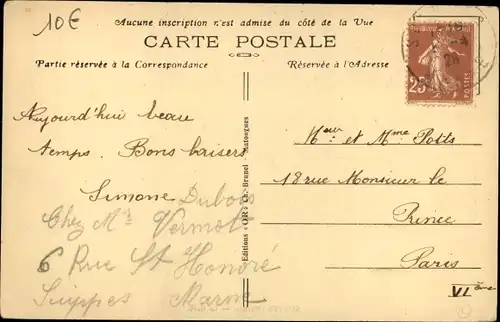 10€
Aucune inscription n'est admise du côté de la Vue
CARTE POSTALE
Partie réservée à la Correspondance
Réservée à l'Adresse
25
POSTES
Aujourd'hui beau
temps. Bons baisers
Simone Dubois
Chez Mr Vermot
6 Rue St Honoré
Suippes Marne
Editions "OR" Ch. Brunel Matougues
Mr et Mme Potts
18 rue Monsieur le
Prince
Paris
VIème